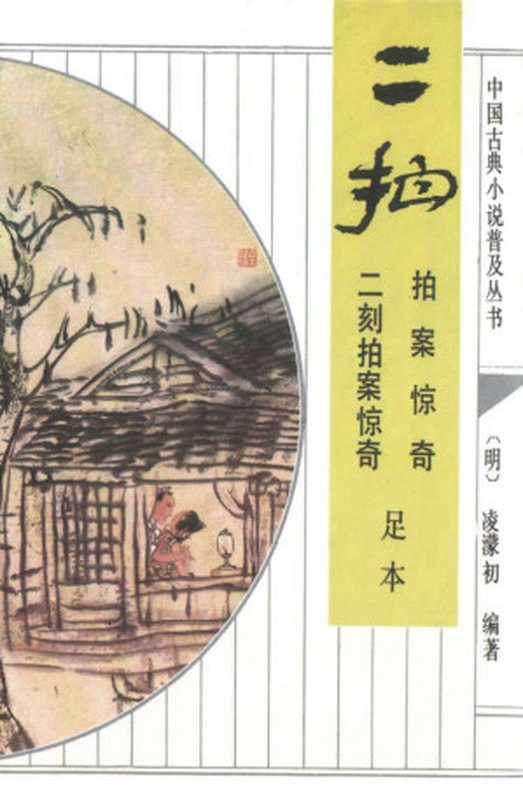 中国古典小说普及丛书
〔明〕 凌濛初 编著
二拍
拍案惊奇
二刻拍案惊奇
足本